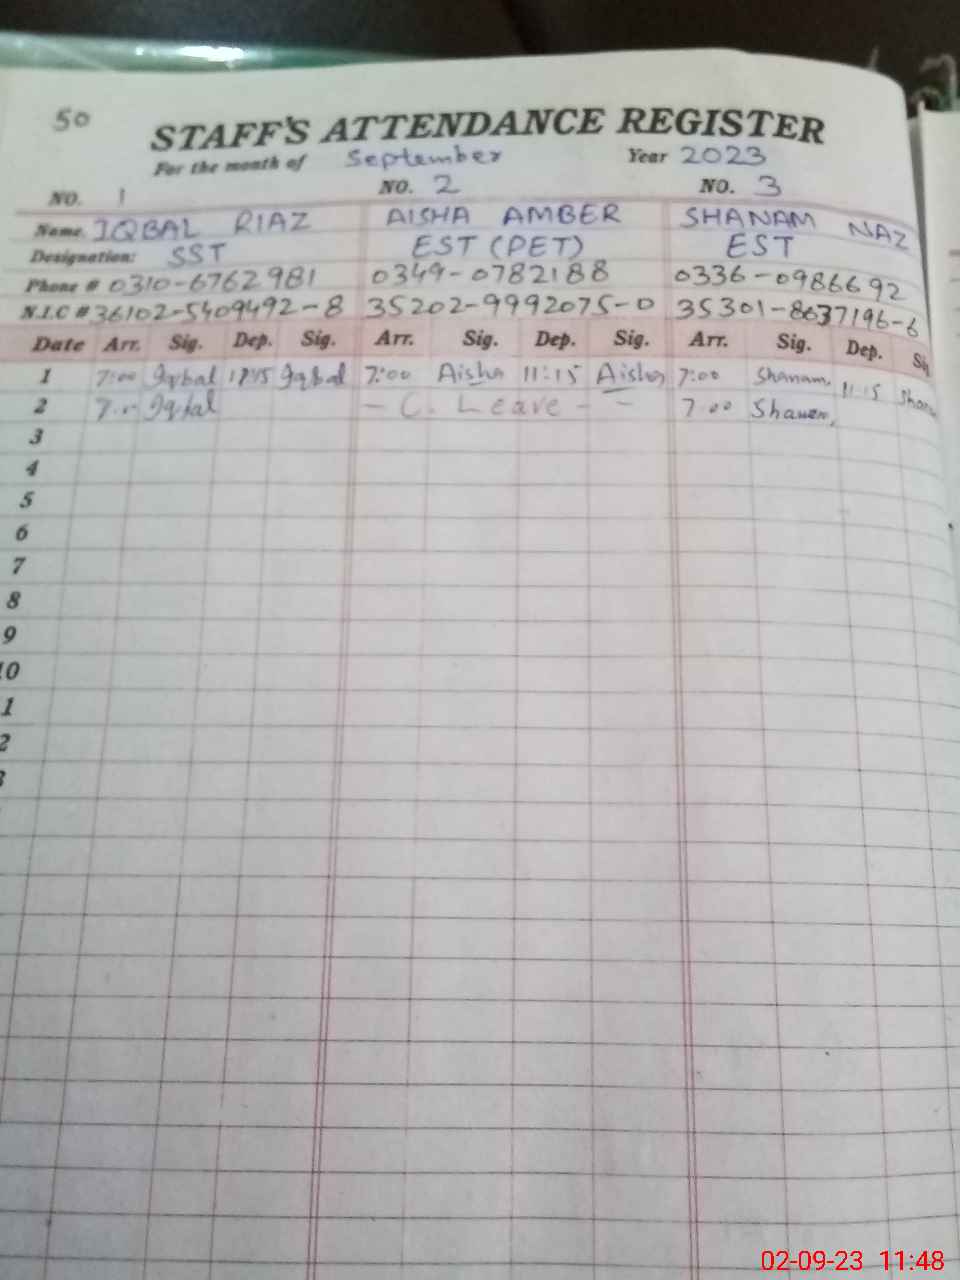 50
STAFF'S ATTENDANCE REGISTER
For the month of September Year 2023
NO. 1 NO. 2 NO. 3
Name. IQBAL RIAZ AISHA AMBER SHANAM NAZ
Designation: SST EST (PET) EST
Phone # 0310-6762981 0349-0782188 0336-0986692
N.I.C # 36102-5409492-8 35202-9992075-0 35301-8637196-6
Date Arr. Sig. Dep. Sig. Arr. Sig. Dep. Sig. Arr. Sig. Dep. Sig
1 7:00 Iqbal Iqbal 7:00 Aisha 11:15 Aisha 7:00 Shanam 11:15
2 Iqbal - C. Leave - - 7:00
3
4
5
6
7
8
9
10
1
2
02-09-23 11:48